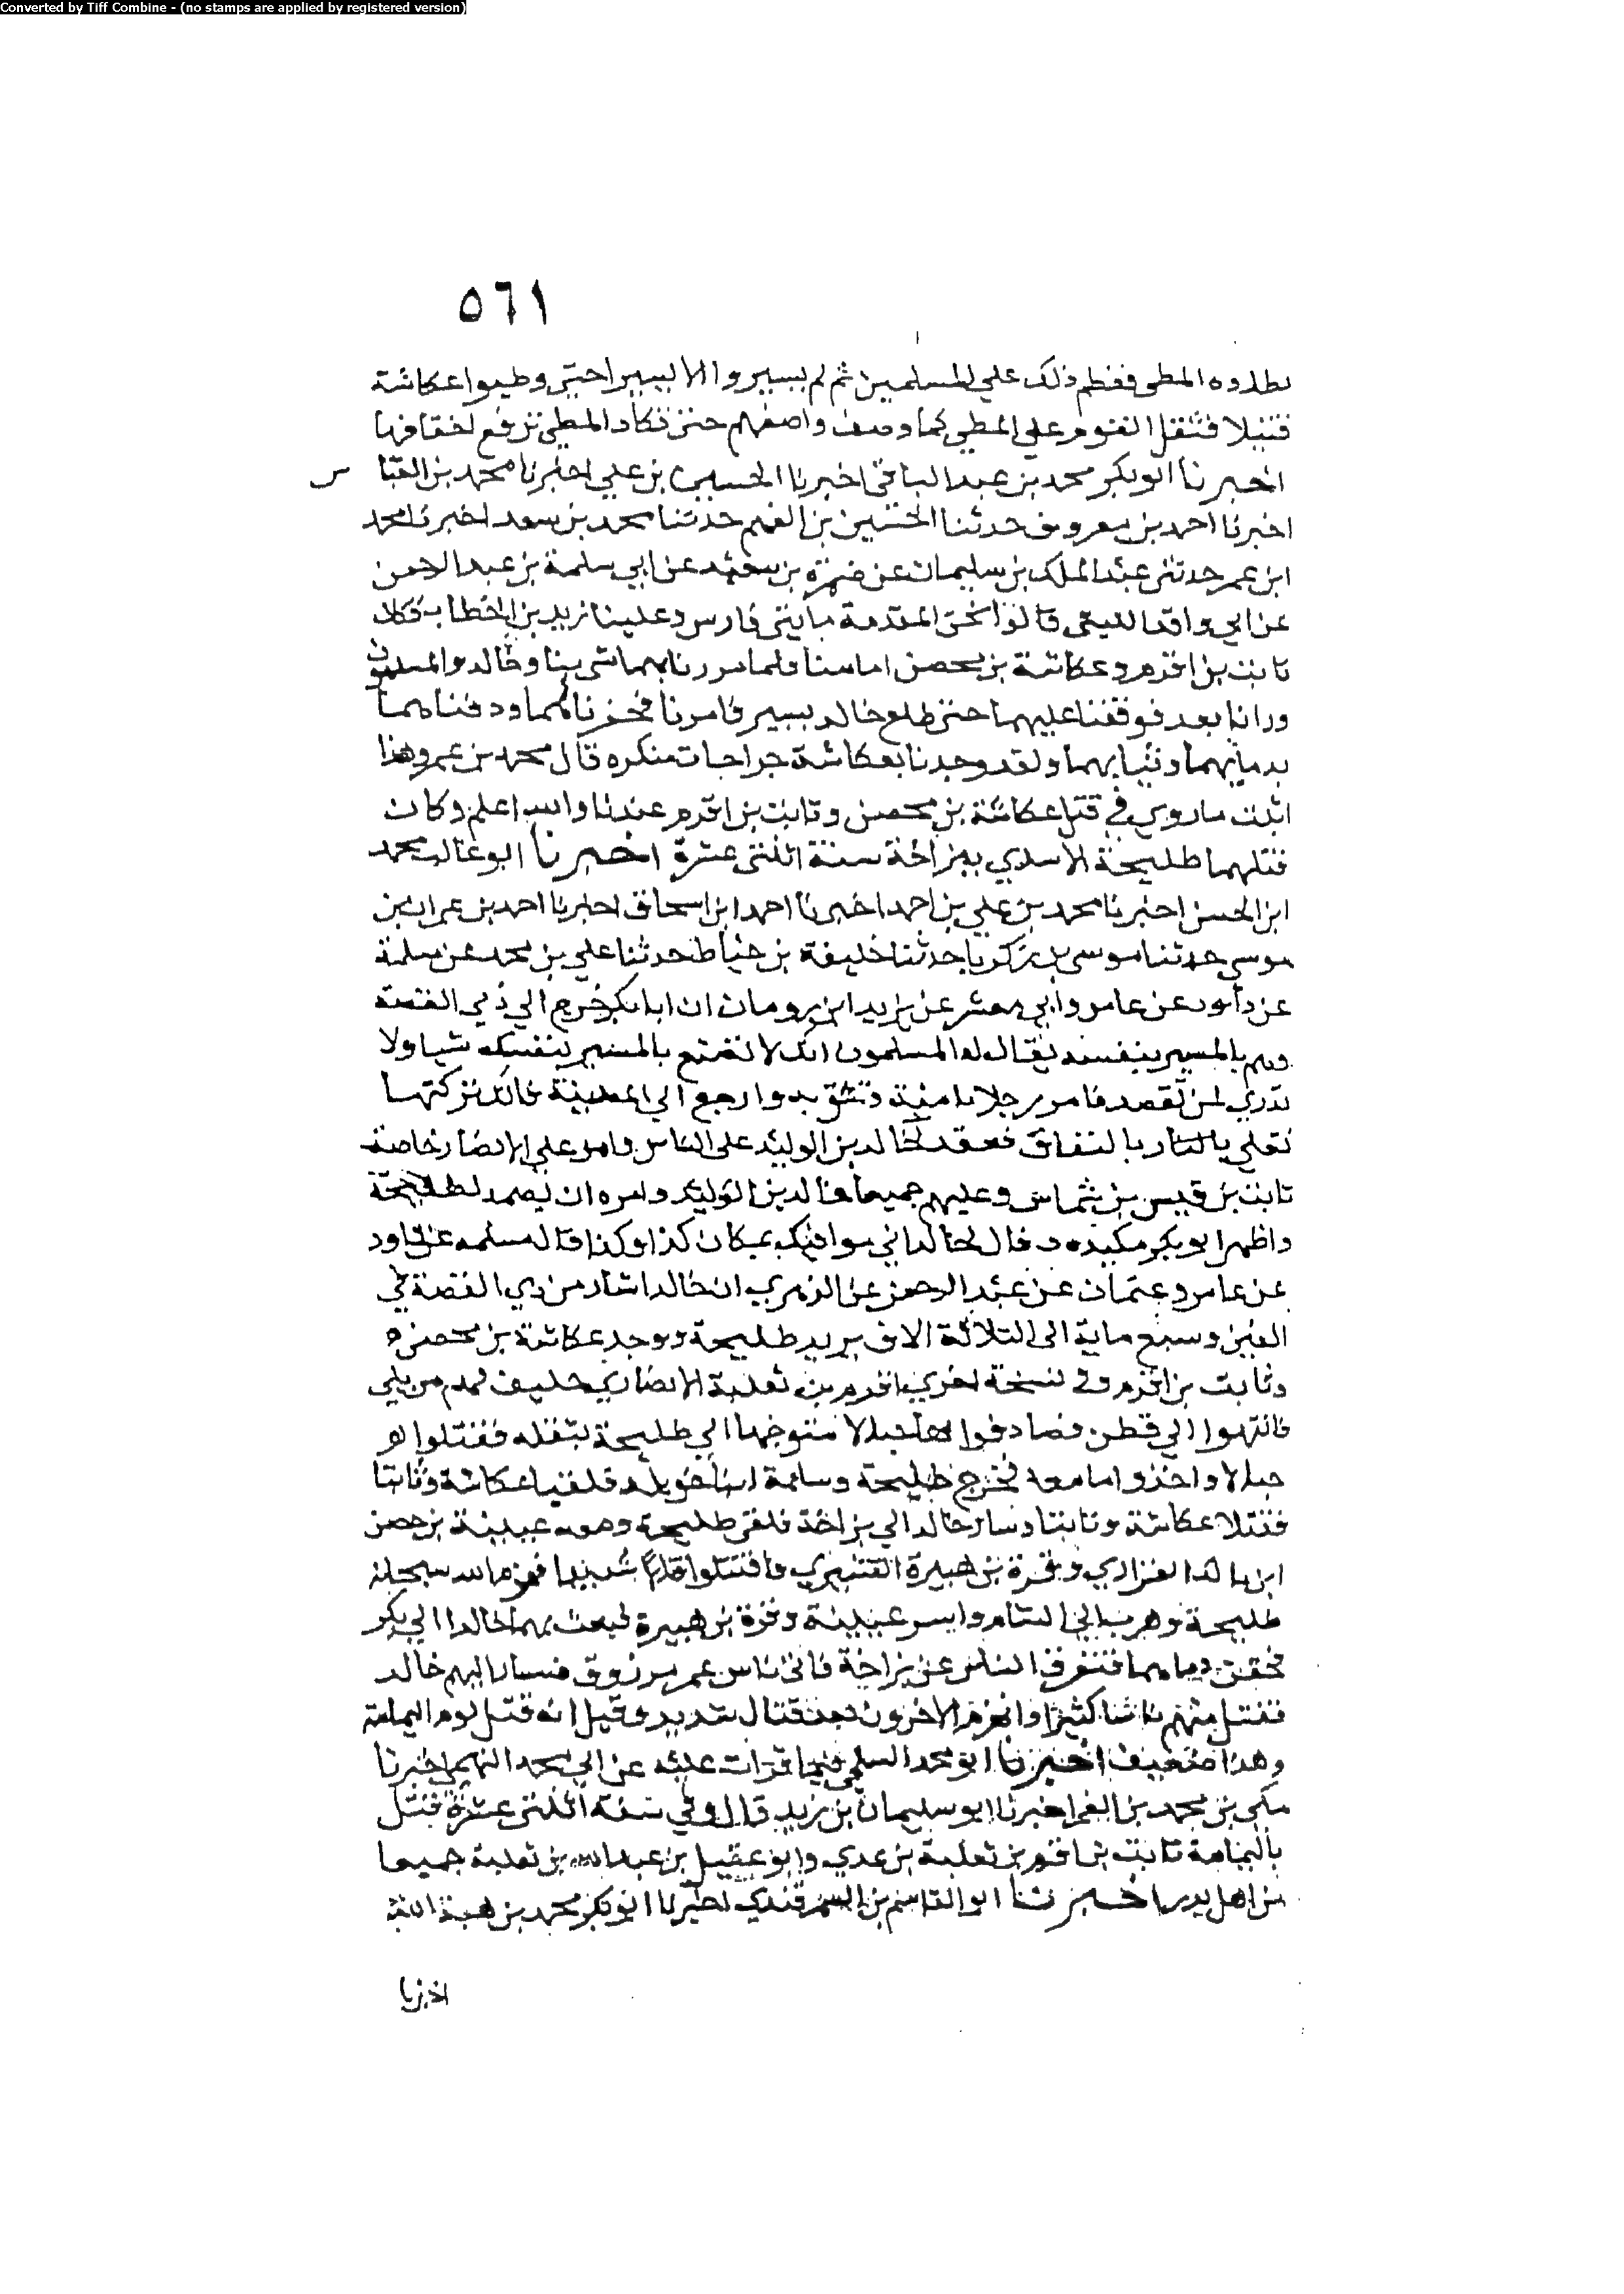 Converted by Tiff Combine - (no stamps are applied by registered version)
٥٦١
تطاوه المطي فعظم ذلك علي المسلمين ثم لم يسيروا الا يسيرا حتي وطيوا عكاشة
قتيلا فثقل القوم علي المطي كما وصف واصفهم حتي تكاد المطي ترفع اخفافها
اخبرنا ابو بكر محمد بن عبد الباقي اخبرنا الحسين بن علي اخبرنا محمد بن العبا س
اخبرنا احمد بن معروف حدثنا الحسين بن الفهم حدثنا محمد بن سعد اخبرنا محمد
ابن عمر حدثني عبد الملك بن سليمان عن ضمرة بن سعيد عن ابي سلمة بن عبد الرحمن
عن ابي واقد الليثي قال نحن المقدمة مايتي فارس وعلينا زيد بن الخطاب فكان
ثابت بن اقرم وعكاشة بن محصن امامنا فلما مررنا بهما سي بنا وخالد والمسلمون
ورانا بعد فوقفنا عليهما حتي طلع خالد بسير فامرنا فحفرنا لهما ودفناهما
بدمايهما وثيابهما ولقد وجدنا بعكاشة جراحات منكره قال محمد بن عمر وهذا
اثبت ما روي في قتل عكاشة بن محصن وثابت بن اقرم عندنا والله اعلم وكان
قتلهما طليحة الاسدي ببزاخة سنة اثنتي عشرة اخبرنا ابو غالب محمد
ابن الحسن اخبرنا محمد بن علي بن احمد اخبرنا احمد ابن اسحاق اخبرنا احمد بن عمران بن
موسي حدثنا موسي بن زكريا حدثنا خليفة بن خياط حدثنا علي بن محمد عن مسلمة
عن داود عن عامر وابي معشر عن يزيد ابن رومان ان ابا بكر خرج الي ذي القصة
وهم بالمسير بنفسه فقال له المسلمون انك لا تصنع بالمسير بنفسك شيا ولا
تدري لمن تقصد فامر رجلا تامنه وتثق به وارجع الي المدينة فانك تركتها
تغلي بالنار بالنفاق فعقد لخالد بن الوليد علي الناس وامر علي الانصار خاصة
ثابت بن قيس بن شماس وعليهم جميعا خالد بن الوليد وامره ان يصمد لطليحة
واظهر ابو بكر مكيده وقال لخالد اني موافيك بمكان كذا وكذا قال مسلمه عن داود
عن عامر وعثمان عن عبد الرحمن عن الزهري ان خالدا سار من ذي القصة في
الفين وسبع ماية الي الثلاثة الاف يريد طليحة ووجه عكاشة بن محصن
وثابت بن اقرم وفي نسخة اخري اقرم بن ثعلبة الانصاري حليف لهم من بلي
فانتهوا الي قطن فصادفوا بها حبالا متوجها الي طليحة بثقله فقتلوا
حبالا واخذوا ما معه فخرج طليحة وسلمة ابنا خويلد فلقيا عكاشة وثابتا
فقتلا عكاشة وثابتا وسار خالد الي بزاخة فلقي طليحة ومعه عيينة بن حصن
ابن مالك الفزاري وقرة بن هبيرة القشيري فاقتتلوا قتالا شديدا فهزم الله سبحانه
طليحة وهرب الي الشام واسر عيينة وقرة بن هبيرة فبعث بهما خالدا الي ابي بكر
فحقن دماهما فتفرق الناس عن بزاخة فاتي ناس عمر مرزوق فسار اليهم خالد
فقتل منهم ناسا كثيرا وانهزم الاخرون بعد قتال شديد وقيل انه قتل يوم اليمامة
وهذا ضعيف اخبرنا ابو محمد السلمي فيما قرات عليه عن ابي محمد التميمي اخبرنا
مكي بن محمد بن الغمر اخبرنا ابو سليمان بن زيد قال وفي سنة اثنتي عشرة قتل
باليمامة ثابت بن اقرم بن ثعلبة بن عدي وابو عقيل بن عبد الله بن ثعلبة جميعا
من اهل بدر اخبرنا ابو القاسم بن السمرقندي اخبرنا ابو بكر محمد بن هبة الله
اخبرنا